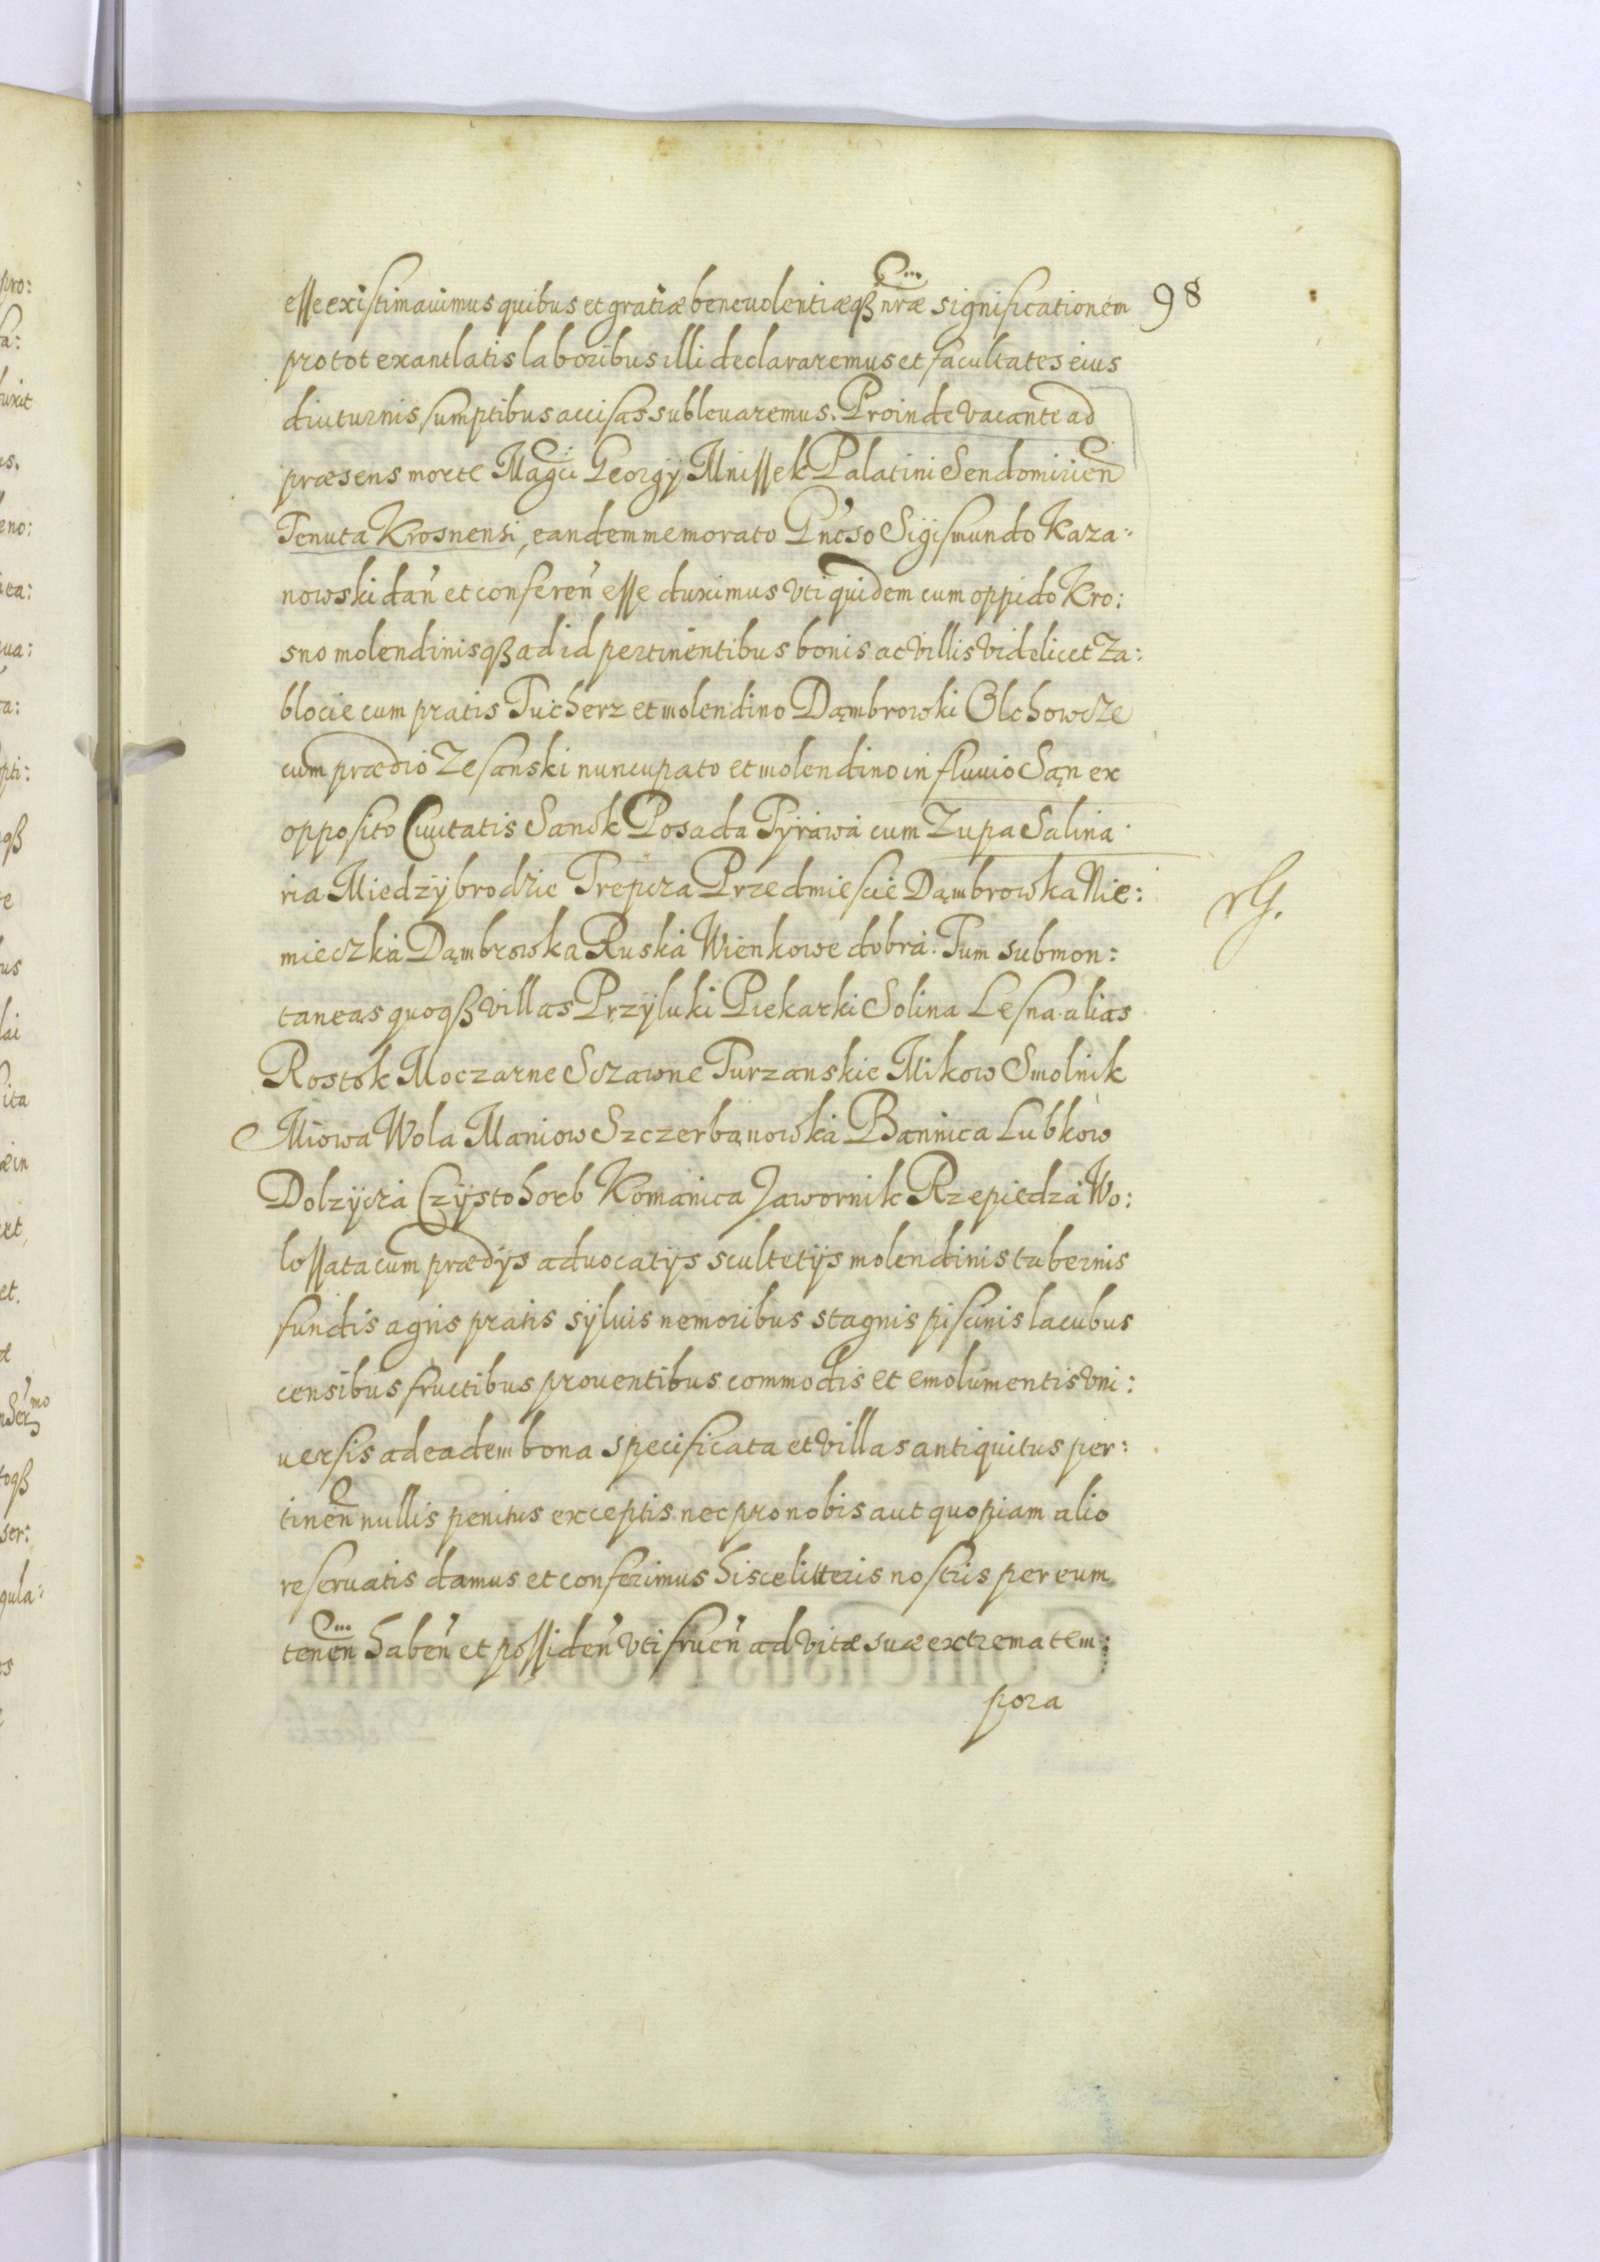 98
esse existimauimus quibus et gratiæ beneuolentiæqß nræ significationem
pro tot exantlatis laboribus illi declararemus et facultates eius
diuturnis sumptibus accisas subleuaremus. Proinde vacante ad
præsens morte Magci Georgÿ Mnissek Palatini Sendomirien
Tenuta Krosnensi, eandem memorato Gnoso Sigismundo Kaza:
nowski dan et conferen esse duximus vti quidem cum oppido Kro:
sno molendinisqß ad id pertinentibus bonis ac villis videlicet Za:
blocie cum pratis Tucherz et molendino Dąmbrowski Olchowcze
cum prædio Zesanski nuncupato et molendino in fluuio Sąn ex
opposito Ciuitatis Sanok Posada Tÿrawa cum Zupa Salina:
ria Miedzÿbrodzie Trepcza Przedmiescie Dąmbrowka Nie:
mieczka Dąmbrowka Ruska Wienkowe dobra. Tum submon:
taneas quoqß villas Przÿluki Piekarki Solina Lesna alias
Rostok Moczarne Sczawne Turzanskie Mikow Smolnik
Miowa Wola Maniow Szczerbanowska Bannica Lubkow
Dolzÿcza Czÿstohorb Komanica Jawornik Rzepiedza Wo:
lossata cum prædÿs aduocatÿs scultetÿs molendinis tabernis
fundis agris pratis sÿluis nemoribus stagnis piscinis lacubus
censibus fructibus prouentibus commodis et emolumentis vni:
uersis ad eadem bona specificata et villas antiquitus per:
tinen nullis penitus exceptis nec pro nobis aut quopiam alio
reseruatis damus et conferimus hisce litteris nostris per eum
tenen haben et possiden vti fruen ad vitæ suæ extrema tem:
pora